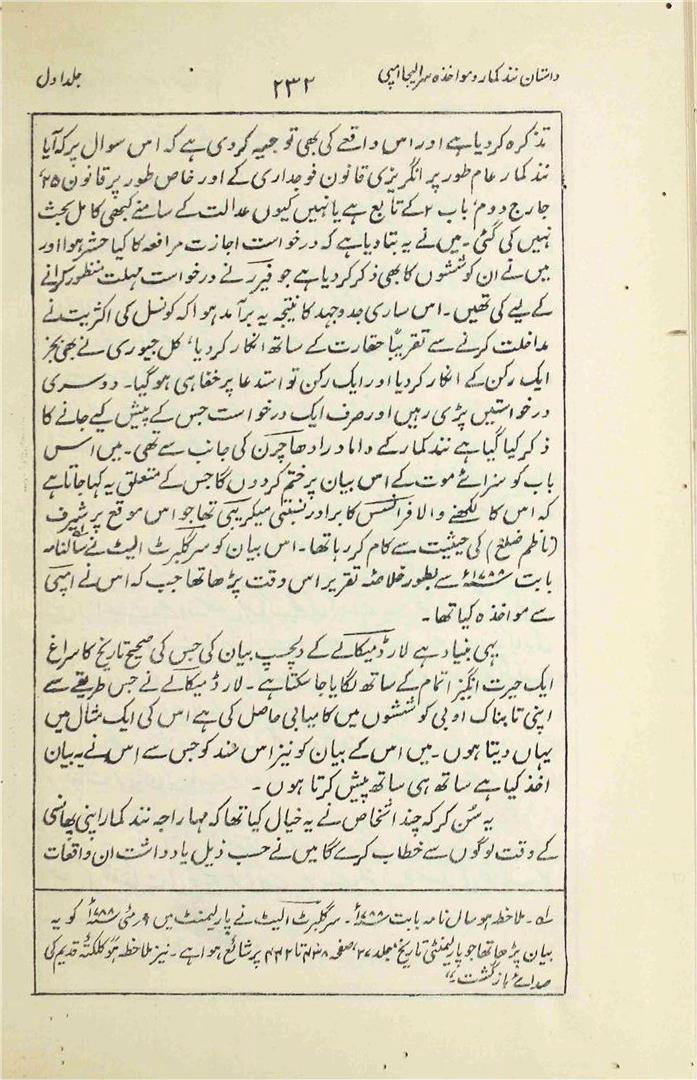 داستان نند کمار و مواخذہ سر الیجا امپی
۲۳۲
جلد اول
تذکرہ کر دیا ہے اور اس واقعے کی بھی توجیہ کر دی ہے کہ اس سوال پر کہ آیا
نند کمار عام طور پر انگریزی قانون فوجداری کے اور خاص طور پر قانون ۲۵
جارج دوم باب ۲ کے تابع ہے یا نہیں کیوں عدالت کے سامنے کبھی کامل بحث
نہیں کی گئی۔ میں نے یہ بتا دیا ہے کہ درخواست اجازت مرافعہ کا کیا حشر ہوا اور
میں نے ان کوششوں کا بھی ذکر کر دیا ہے جو فیرر نے درخواست مہلت منظور کرانے
کے لیے کی تھیں۔ اس ساری جدوجہد کا نتیجہ یہ برآمد ہوا کہ کونسل کی اکثریت نے
مداخلت کرنے سے تقریباً حقارت کے ساتھ انکار کر دیا، کل جیوری نے بھی بجز
ایک رکن کے انکار کر دیا اور ایک رکن تو استدعا پر خفا ہی ہو گیا۔ دوسری
درخواستیں پڑی رہیں اور صرف ایک درخواست جس کے پیش کیے جانے کا
ذکر کیا گیا ہے نند کمار کے داماد رادھا چرن کی جانب سے تھی۔ میں اس
باب کو سزائے موت کے اس بیان پر ختم کردوں گا جس کے متعلق یہ کہا جاتا ہے
کہ اس کا لکھنے والا فرانسس کا برادر نسبتی میکریبی تھا جو اس موقع پر شیرف
(ناظم ضلع) کی حیثیت سے کام کر رہا تھا۔ اس بیان کو سر گلبرٹ الیٹ نے سالنامہ
بابت ۱۷۸۸ء سے بطور خلاصہ تقریر اس وقت پڑھا تھا جب کہ اس نے امپی
سے مواخذہ کیا تھا۔
یہی بنیاد ہے لارڈ میکالے کے دلچسپ بیان کی جس کی صحیح تاریخ کا سراغ
ایک حیرت انگیز اتمام کے ساتھ لگایا جا سکتا ہے۔ لارڈ میکالے نے جس طریقے سے
اپنی تابناک ادبی کوششوں میں کامیابی حاصل کی ہے اس کی ایک مثال میں
یہاں دیتا ہوں۔ میں اس کے بیان کو نیز اس سند کو جس سے اس نے یہ بیان
اخذ کیا ہے ساتھ ہی ساتھ پیش کرتا ہوں۔
یہ سن کر کہ چند اشخاص نے یہ خیال کیا تھا کہ مہاراجہ نند کمار اپنی پھانسی
کے وقت لوگوں سے خطاب کرے گا میں نے حسب ذیل یادداشت ان واقعات
۱؎۔ ملاحظہ ہو سال نامہ بابت ۱۷۸۸ء۔ سر گلبرٹ الیٹ نے پارلیمنٹ میں ۹ مئی ۱۷۸۸ء کو یہ
بیان پڑھا تھا جو پارلیمنٹی تاریخ، جلد ۲۷، صفحہ ۴۳۸ تا ۴۴۲ پر شائع ہوا ہے۔ نیز ملاحظہ ہو "کلکتہ قدیم کی
صدائے بازگشت۔"